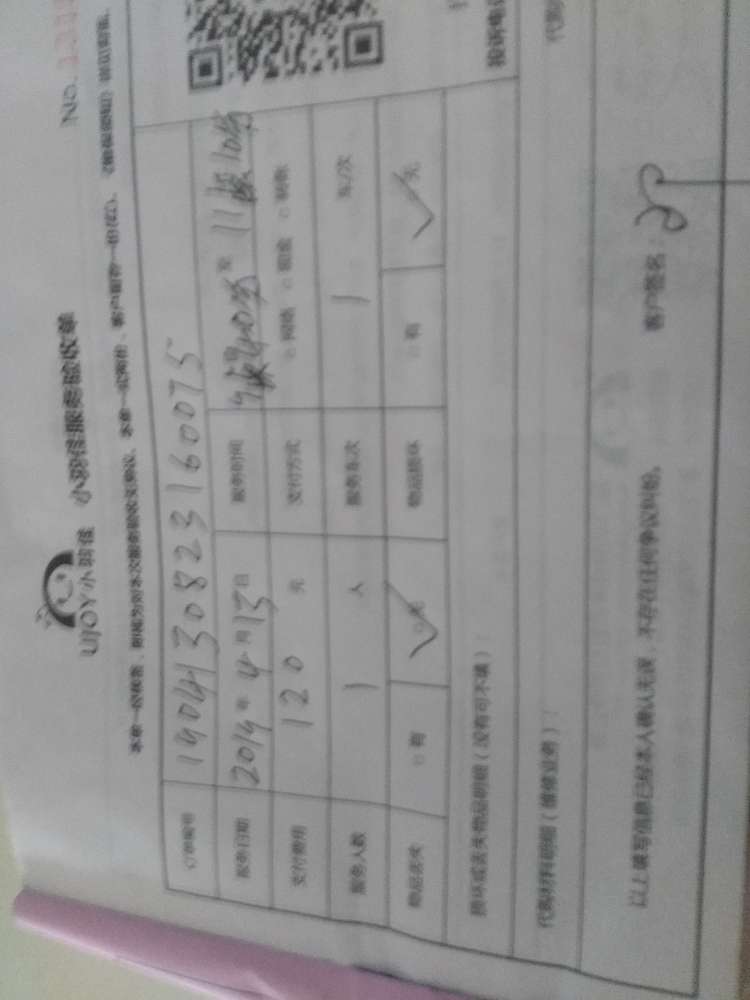 No.
UJOY小羽佳 小羽佳服务验收单
订单编号 1904130823160075
服务日期 2019年4月13日 服务时间 9时40分至11时10分
支付费用 120元 支付方式 □网络 □现金 □转账
服务人数 1人 服务车次 1车/次
物品丢失 □有 □无 物品损坏 □有 □无
损坏或丢失物品明细（没有可不填）：
代购材料明细（维修业务）：
以上填写信息已经本人确认无误，不存在任何争议纠纷。 客户签名：
投诉电
代购